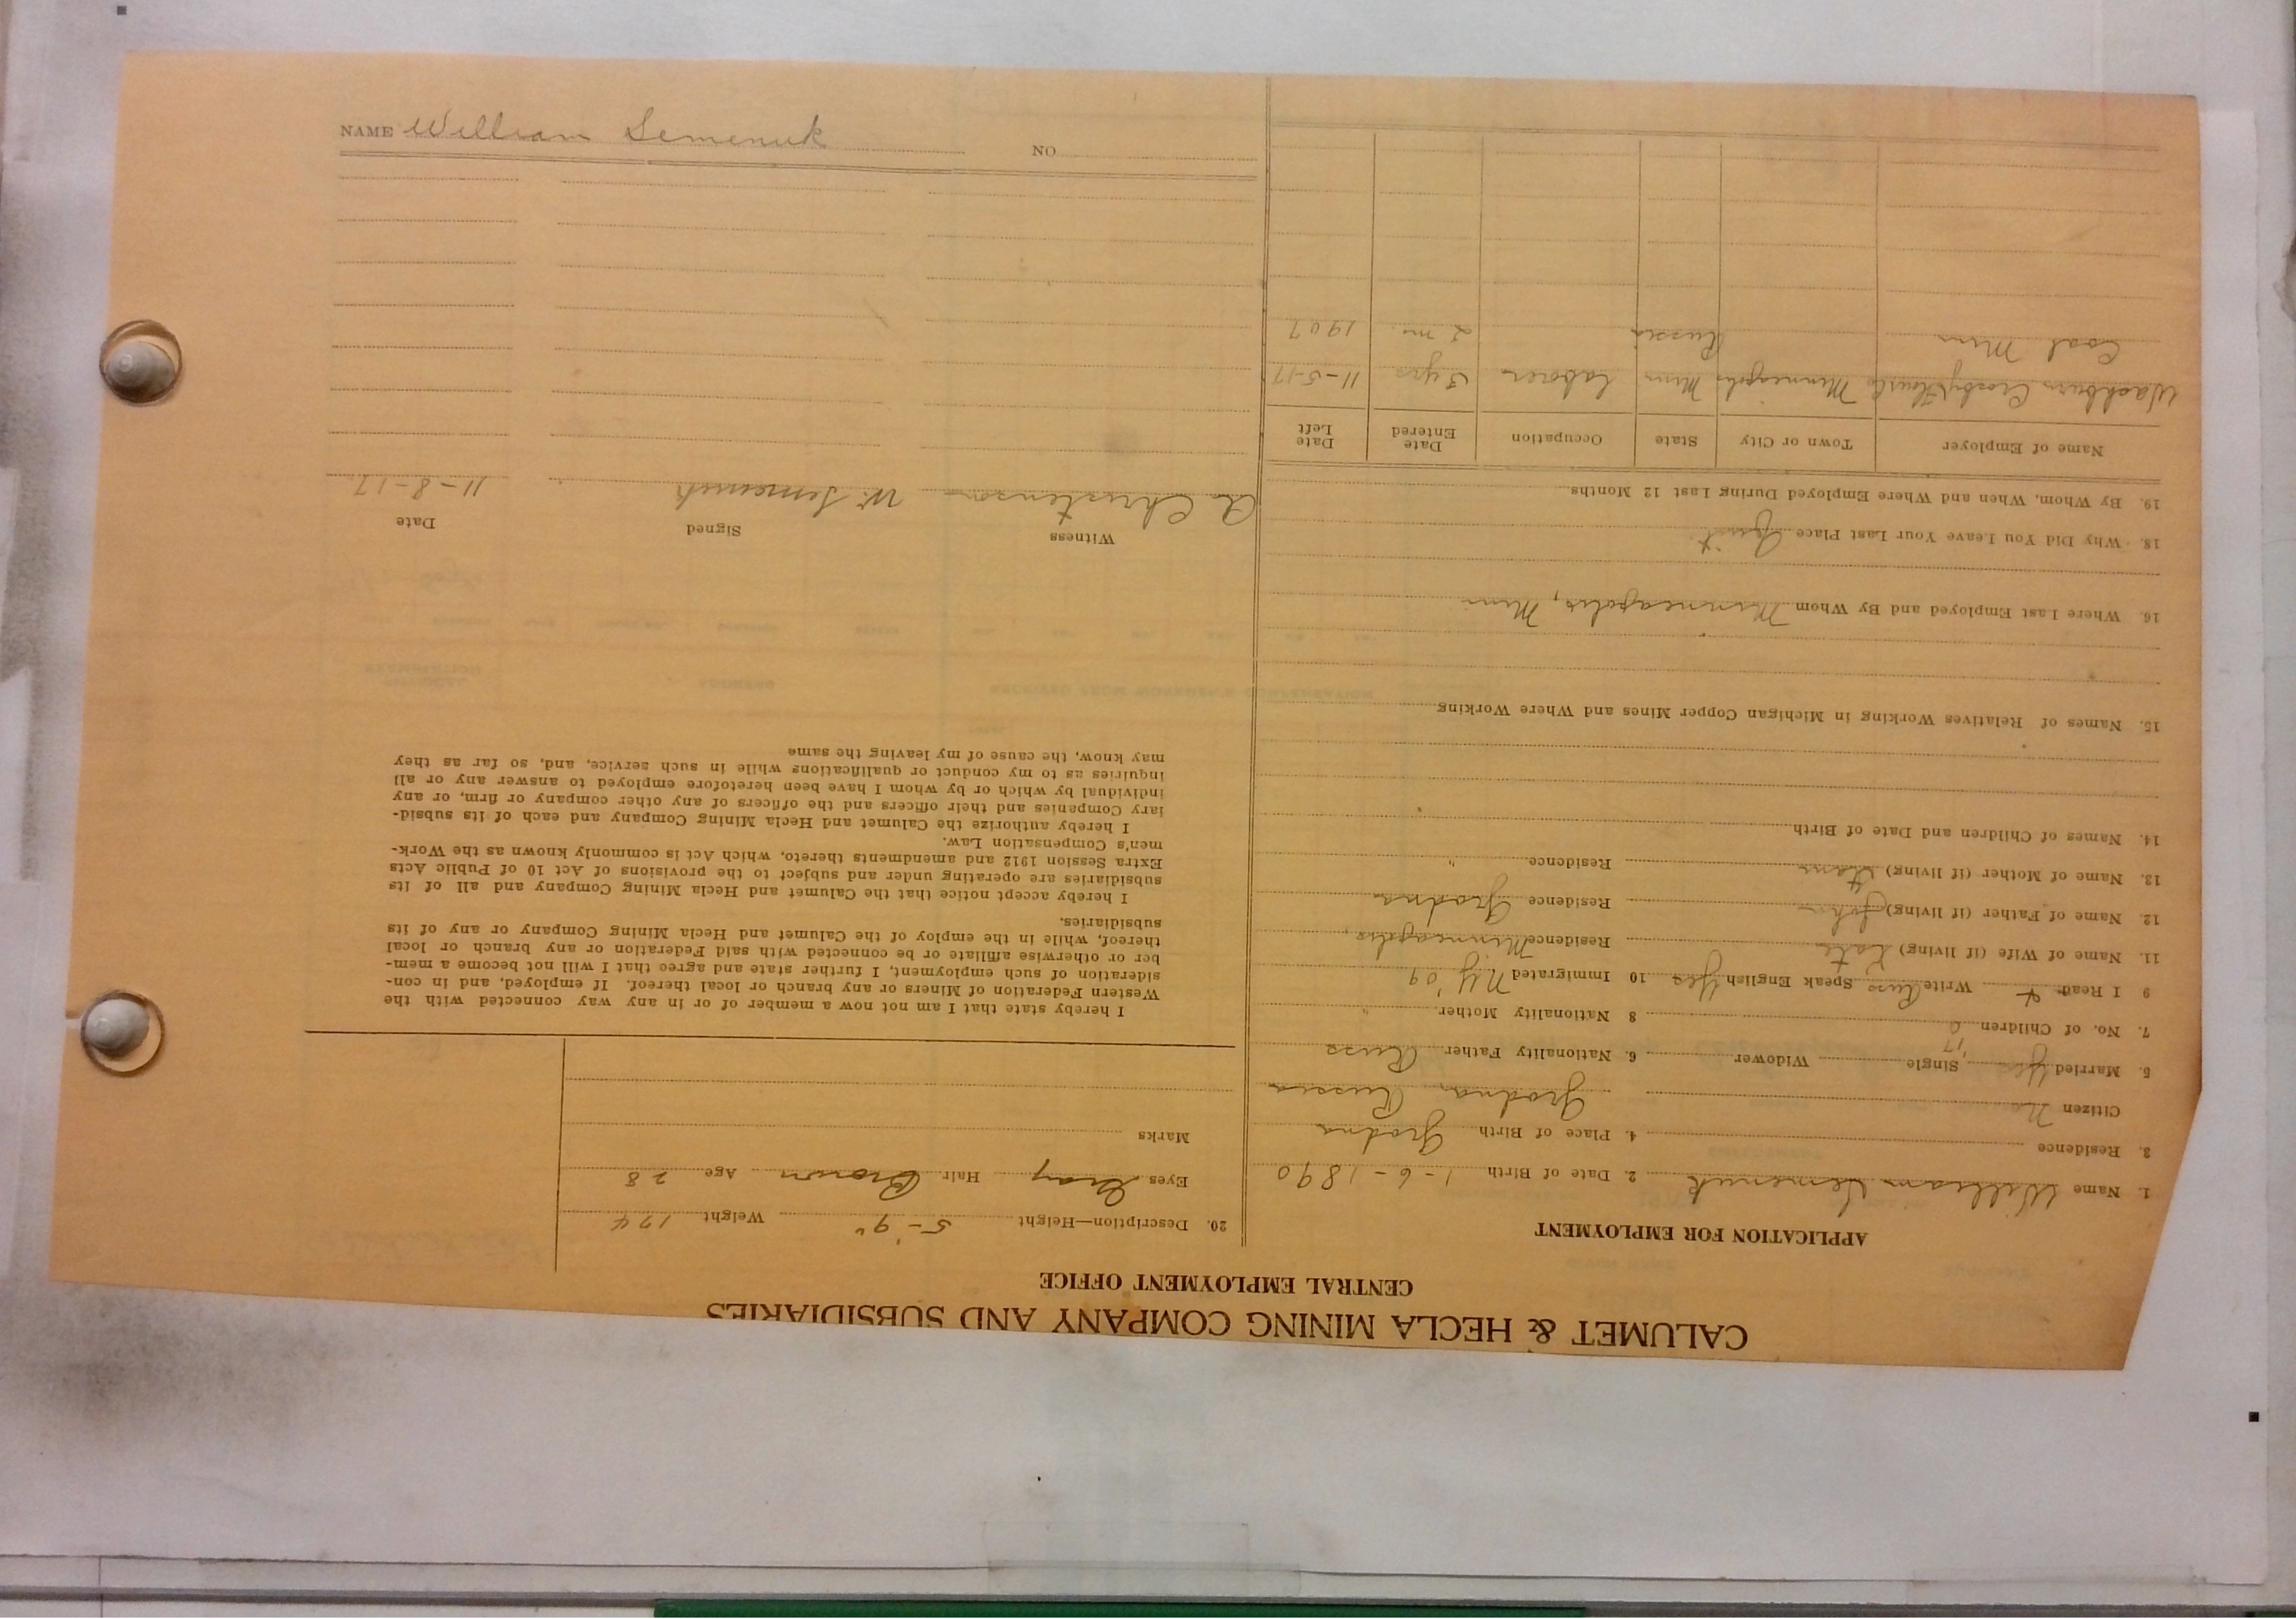 CALUMET & HECLA MINING COMPANY AND SUBSIDIARIES
CENTRAL EMPLOYMENT OFFICE
APPLICATION FOR EMPLOYMENT
1. Name William Semenuk 2. Date of Birth 1-6-1890
3. Residence 4. Place of Birth Grodna
Citizen No Grodna, Russia
5. Married Yes '17 Single Widower 6. Nationality Father Russ
7. No. of Children 0 8 Nationality Mother "
9 I Read + Write Russ Speak English Yes 10 Immigrated N.Y. '09
11. Name of Wife (if living) Kate Residence Minneapolis,
12. Name of Father (if living) John Residence Grodna
13. Name of Mother (if living) Residence "
14. Names of Children and Date of Birth
15. Names of Relatives Working in Michigan Copper Mines and Where Working
16. Where Last Employed and By Whom Minneapolis, Minn
18. Why Did You Leave Your Last Place Quit
19. By Whom, When and Where Employed During Last 12 Months
Name of Employer Town or City State Occupation Date Entered Date Left
Washburn Crosby Flour Co Minneapolis Minn Laborer 3 yrs 11-5-17
Coal Mine Russia 2 m. 1907
20. Description—Height 5-9" Weight 174
Eyes Gray Hair Brown Age 28
Marks
I hereby state that I am not now a member of or in any way connected with the
Western Federation of Miners or any branch or local thereof. If employed, and in con-
sideration of such employment, I further state and agree that I will not become a mem-
ber or otherwise affiliate or be connected with said Federation or any branch or local
thereof, while in the employ of the Calumet and Hecla Mining Company or any of its
subsidiaries.
I hereby accept notice that the Calumet and Hecla Mining Company and all of its
subsidiaries are operating under and subject to the provisions of Act 10 of Public Acts
Extra Session 1912 and amendments thereto, which Act is commonly known as the Work-
men's Compensation Law.
I hereby authorize the Calumet and Hecla Mining Company and each of its subsid-
iary Companies and their officers and the officers of any other company or firm, or any
individual by which or by whom I have been heretofore employed to answer any or all
inquiries as to my conduct or qualifications while in such service, and, so far as they
may know, the cause of my leaving the same
Witness Signed Date
A Christenson W. Semenuk 11-8-17
NAME William Semenuk NO